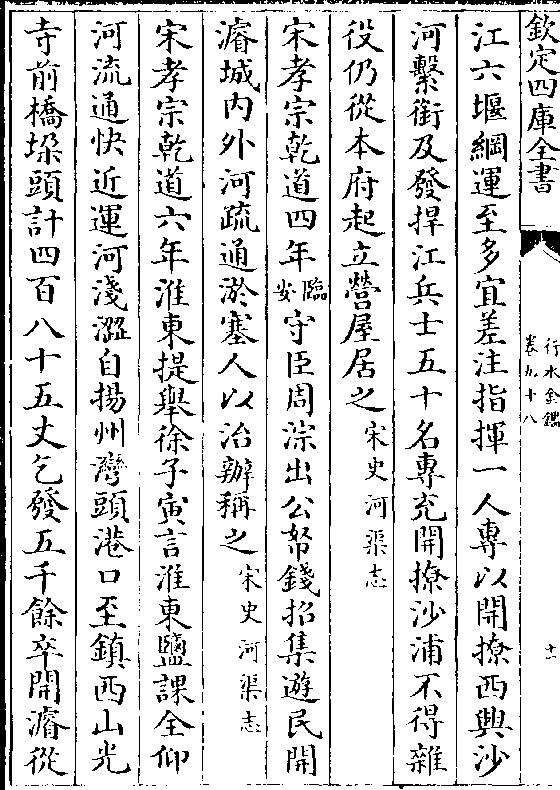 欽定四庫全書
行水金鑑
卷九十八
十一
江六堰綱運至多宜差注指揮一人專以開撩西興沙
河繫銜及發捍江兵士五十名專充開撩沙浦不得雜
役仍從本府起立營屋居之宋史河渠志
宋孝宗乾道四年臨安守臣周淙出公帑錢招集遊民開
濬城内外河疏通淤塞人以治辦稱之宋史河渠志
宋孝宗乾道六年淮東提舉徐子寅言淮東鹽課全仰
河流通快近運河淺澀自揚州灣頭港口至鎮西山光
寺前橋垜頭計四百八十五丈乞發五千餘卒開濬從